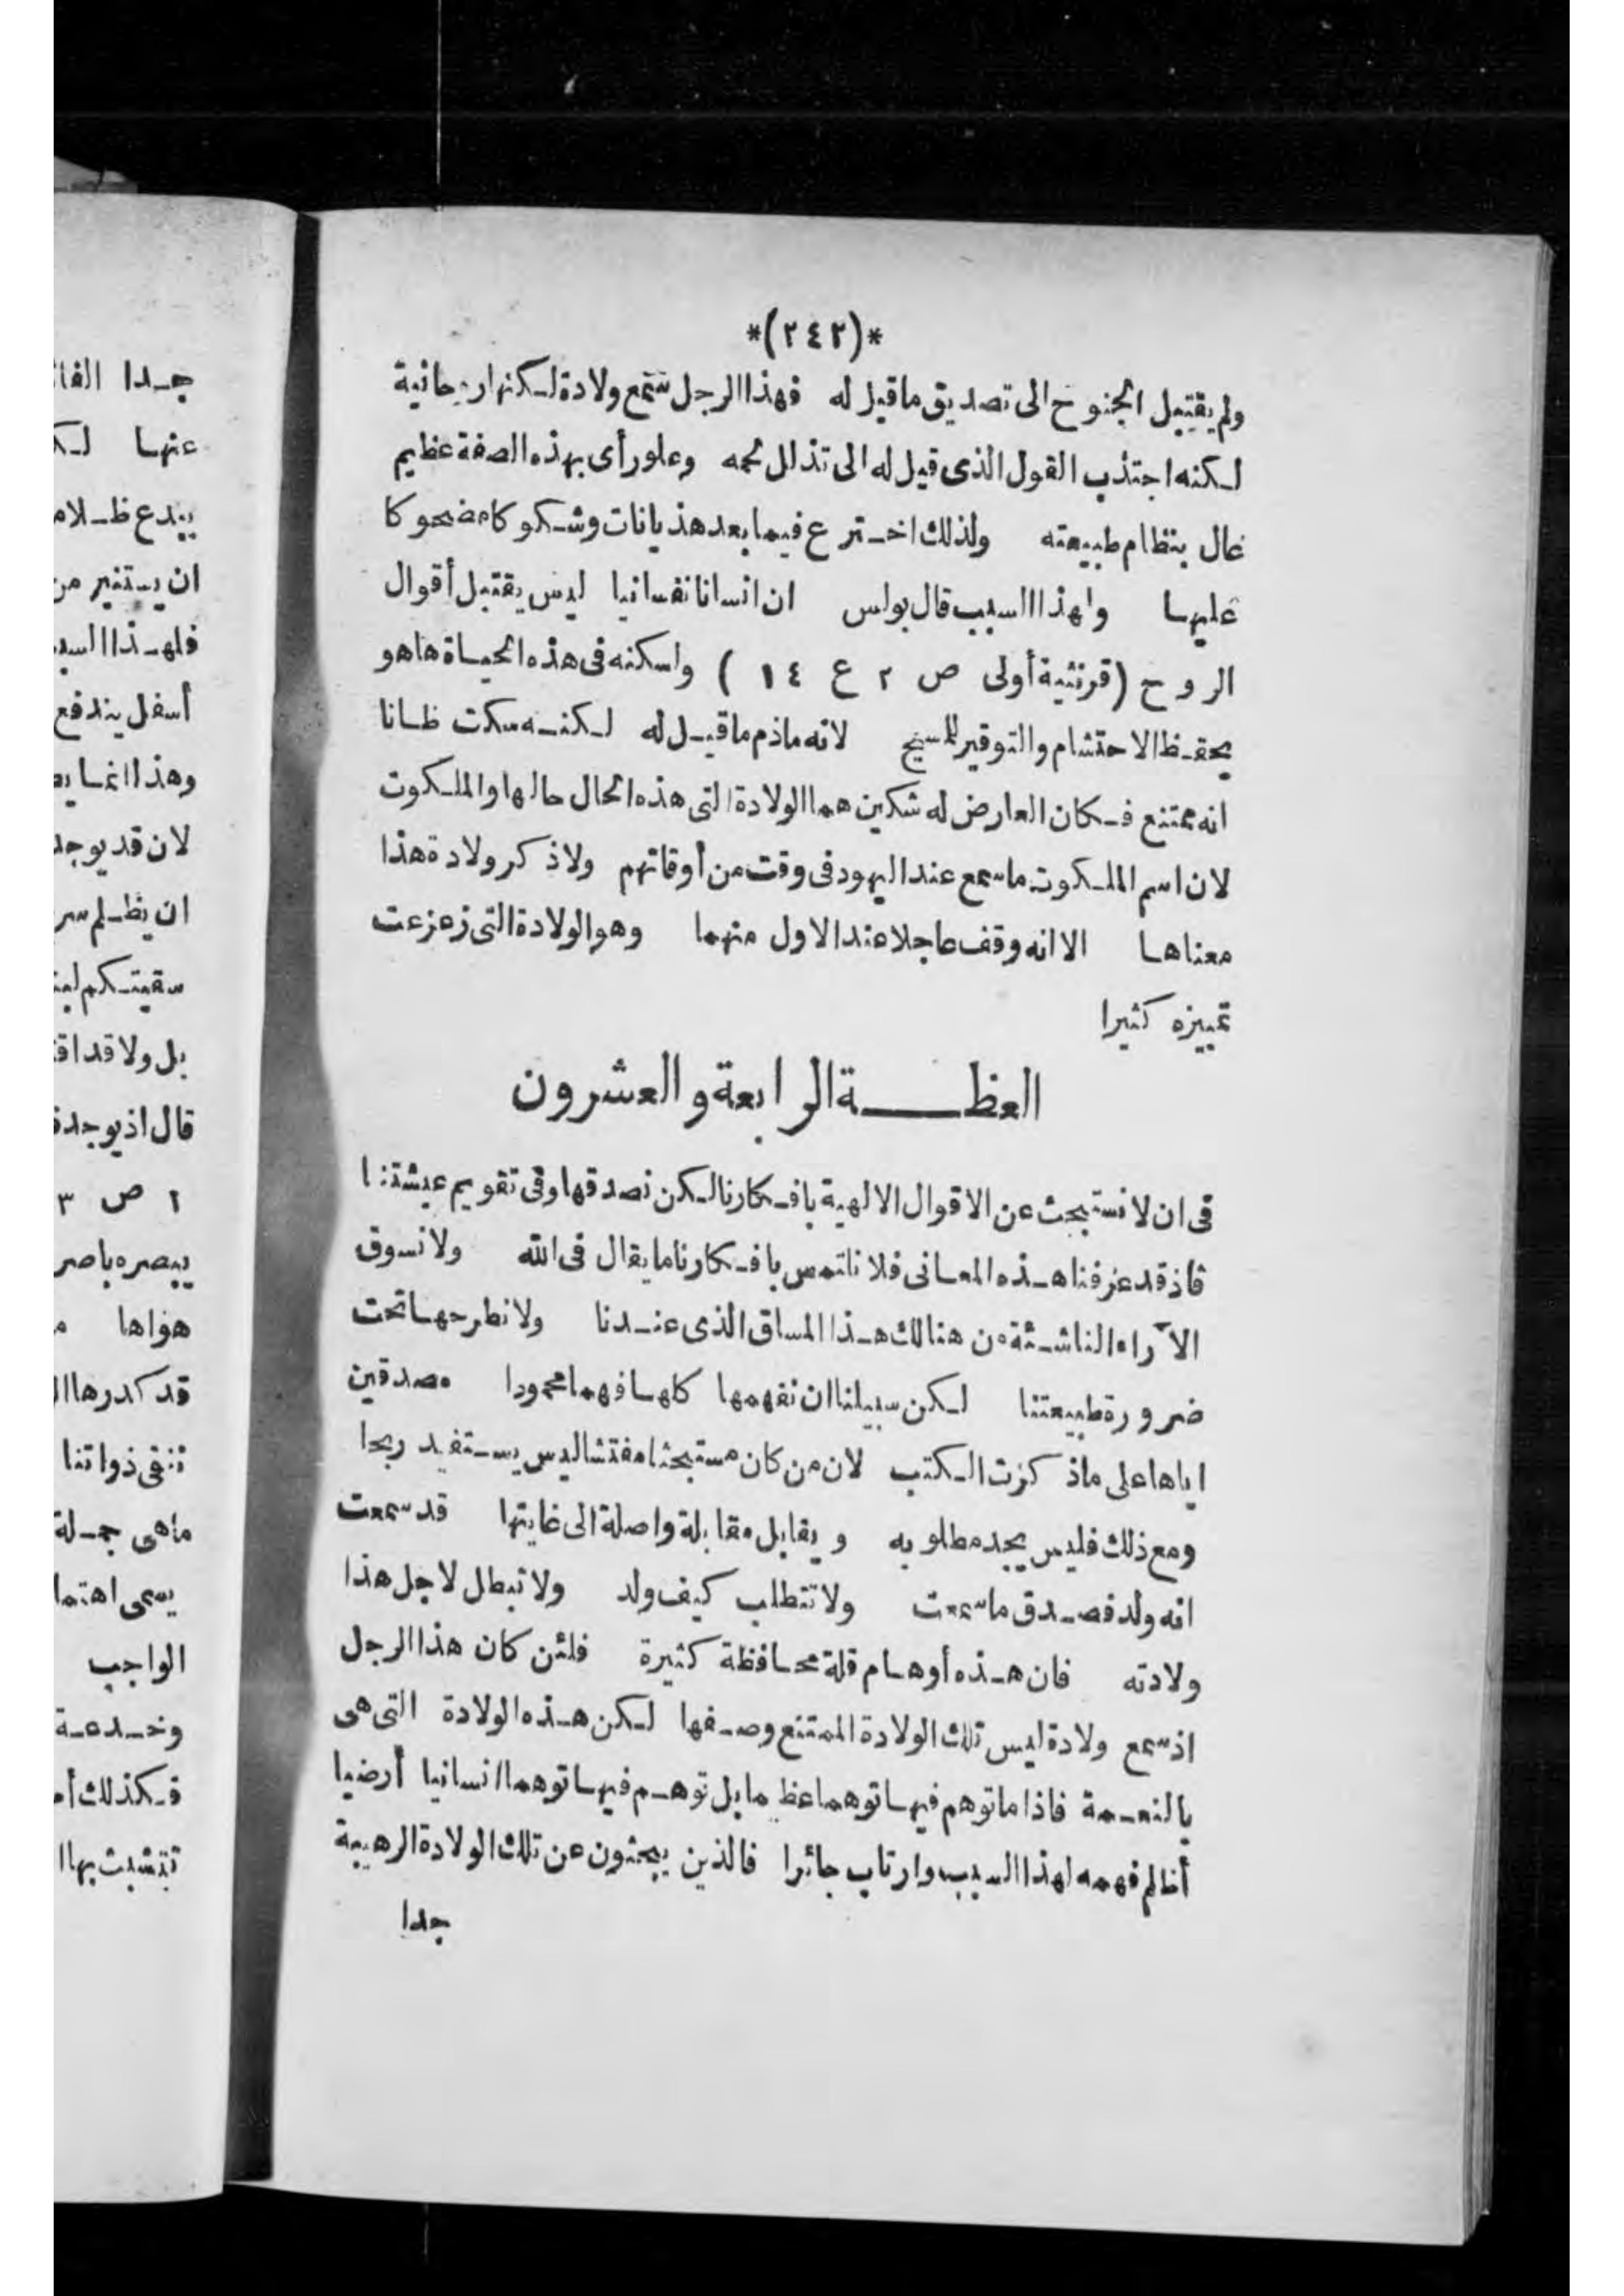 *(٢٤٢)*
ولم يقتبل الجنوح الى تصديق ما قيل له فهذا الرجل سمع ولادة لكنها روحانية
لكنه اجتذب القول الذى قيل له الى تذلل لحمه وعلو رأى بهذه الصفة عظيم
عال بنظام طبيعته ولذلك اخترع فيما بعد هذيانات وشكوكا مضحوكا
عليها ولهذا السبب قال بولس ان انسانا نفسانيا ليس يقتبل أقوال
الروح (قرنثية أولى ص ٢ ع ١٤) ولكنه فى هذه الحياة ها هو
يحفظ الاحتشام والتوقير للمسيح لانه ماذم ما قيل له لكنه سكت ظانا
انه ممتنع فكان العارض له شكين هما الولادة التى هذه الحال حالها والملكوت
لان اسم الملكوت ما سمع عند اليهود فى وقت من أوقاتهم ولا ذكر ولادة هذا
معناها الا انه وقف عاجلا عند الاول منهما وهو الولادة التى زعزعت
تمييزه كثيرا
العظة الرابعة والعشرون
فى ان لا نستبحث عن الاقوال الالهية بافكارنا لكن نصدقها وفى تقويم عيشتنا
فاذ قد عرفنا هذه المعانى فلا نلتمس بافكارنا ما يقال فى الله ولا نسوق
الآراء الناشئة من هنالك هذا المساق الذى عندنا ولا نطرحها تحت
ضرورة طبيعتنا لكن سبيلنا ان نفهمها كلها فهما محمودا مصدقين
اياها على ما ذكرت الكتب لان من كان مستبحثا مفتشا ليس يستفيد ربحا
ومع ذلك فليس يجد مطلوبه ويقابل مقابلة واصلة الى غايتها قد سمعت
انه ولد فصدق ما سمعت ولا تتطلب كيف ولد ولا تبطل لاجل هذا
ولادته فان هذه أوهام قلة محافظة كثيرة فلئن كان هذا الرجل
اذ سمع ولادة ليس تلك الولادة الممتنع وصفها لكن هذه الولادة التى هى
بالنعمة فاذا ما توهم فيها توهما عظيما بل توهم فيها توهما انسانيا أرضيا
أظلم فهمه لهذا السبب وارتاب حائرا فالذين يبحثون عن تلك الولادة الرهيبة
جدا
جدا
عنها
يبدع ظلام
ان يستنير من
فلهذا السبب
أسفل يندفع
وهذا انما
لان قد يوجد
ان يظلم سر
سقيتكم
بل ولا قد
قال اذ يوجد
١ ص ٣
هواها
قد كدرها
ننقى ذواتنا
ما هى جملة
يسمى
الواجب
وخدعة
فكذلك
تتشبث بها